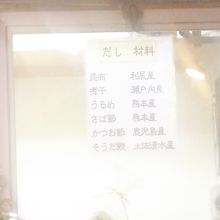 だし 材料
昆布 利尻産
煮干 瀬戸内産
うるめ 熊本産
さば節 熊本産
かつお節 鹿児島産
そうだ節 土佐清水産